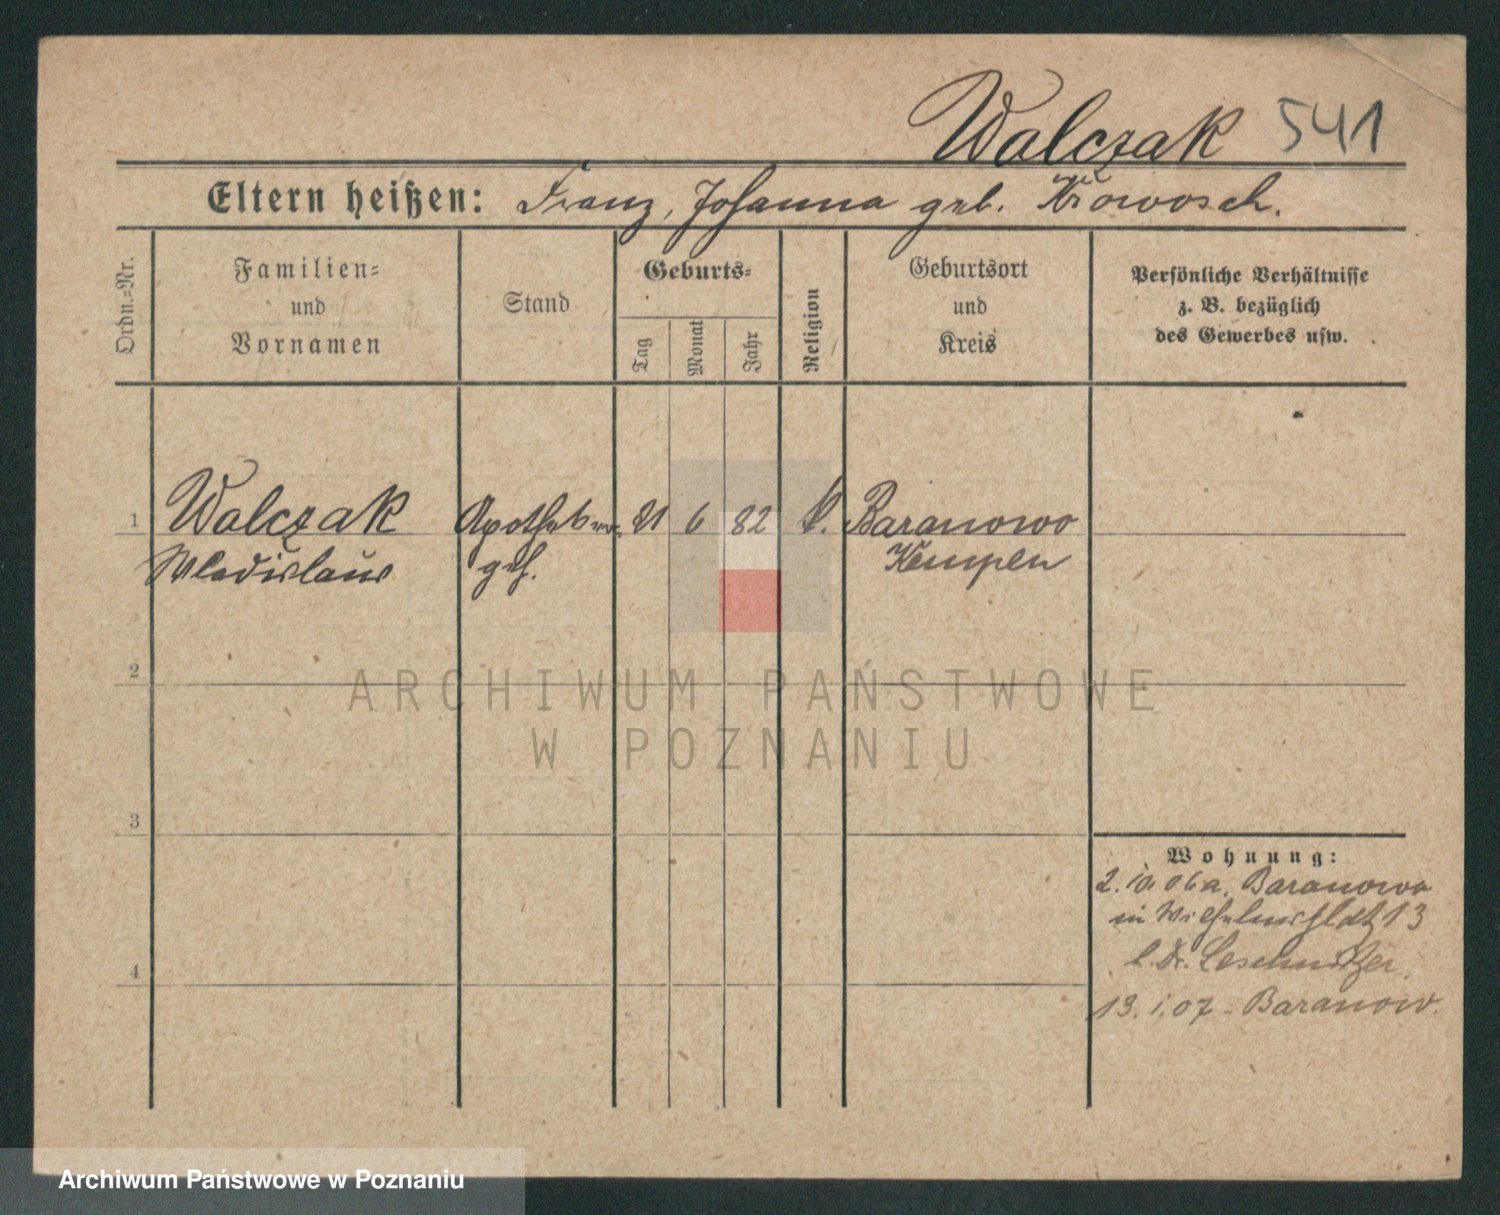 Walczak 541
Eltern heißen: Franz, Johanna geb. Krowosch.
Ordn.=Nr.
Familien=
und
Vornamen
Stand
Geburts=
Tag
Monat
Jahr
Religion
Geburtsort
und
Kreis
Persönliche Verhältnisse
z. B. bezüglich
des Gewerbes usw.
1 Walczak Apotheker 21 6 82 k. Baranowo
Wladislaus geh. Kempen
2
ARCHIWUM PAŃSTWOWE
W POZNANIU
3
Wohnung:
2. 10. 06 a. Baranowo
in Wilhelmspladtz 13
b. Dr. Leschnitzer
4
13. 1. 07 - Baranow.
Archiwum Państwowe w Poznaniu